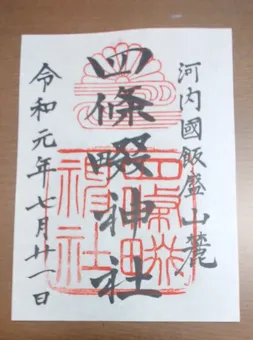 河内國飯盛山麓
四條畷神社
令和元年七月廿一日
四條畷
神社